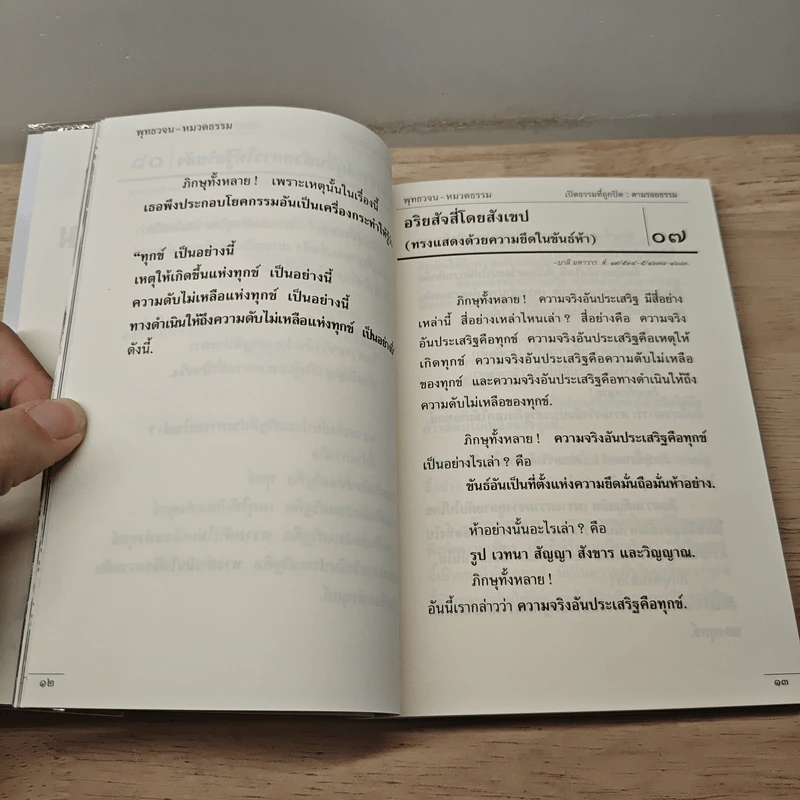 พุทธวจน-หมวดธรรม
ภิกษุทั้งหลาย ! เพราะเหตุนั้นในเรื่องนี้
เธอพึงประกอบโยคกรรมอันเป็นเครื่องกระทำให้รู้ว่า
“ทุกข์ เป็นอย่างนี้
เหตุให้เกิดขึ้นแห่งทุกข์ เป็นอย่างนี้
ความดับไม่เหลือแห่งทุกข์ เป็นอย่างนี้
ทางดำเนินให้ถึงความดับไม่เหลือแห่งทุกข์ เป็นอย่างนี้
ดังนี้.
๑๒
พุทธวจน-หมวดธรรม
เปิดธรรมที่ถูกปิด : ตามรอยธรรม
อริยสัจสี่โดยสังเขป
(ทรงแสดงด้วยความยึดในขันธ์ห้า)
๐๗
-บาลี มหาวาร. สํ.
ภิกษุทั้งหลาย ! ความจริงอันประเสริฐ มีสี่อย่าง
เหล่านี้ สี่อย่างเหล่าไหนเล่า ? สี่อย่างคือ ความจริง
อันประเสริฐคือทุกข์ ความจริงอันประเสริฐคือเหตุให้
เกิดทุกข์ ความจริงอันประเสริฐคือความดับไม่เหลือ
ของทุกข์ และความจริงอันประเสริฐคือทางดำเนินให้ถึง
ความดับไม่เหลือของทุกข์.
ภิกษุทั้งหลาย ! ความจริงอันประเสริฐคือทุกข์
เป็นอย่างไรเล่า ? คือ
ขันธ์อันเป็นที่ตั้งแห่งความยึดมั่นถือมั่นห้าอย่าง.
ห้าอย่างนั้นอะไรเล่า ? คือ
รูป เวทนา สัญญา สังขาร และวิญญาณ.
ภิกษุทั้งหลาย !
อันนี้เรากล่าวว่า ความจริงอันประเสริฐคือทุกข์.
๑๓